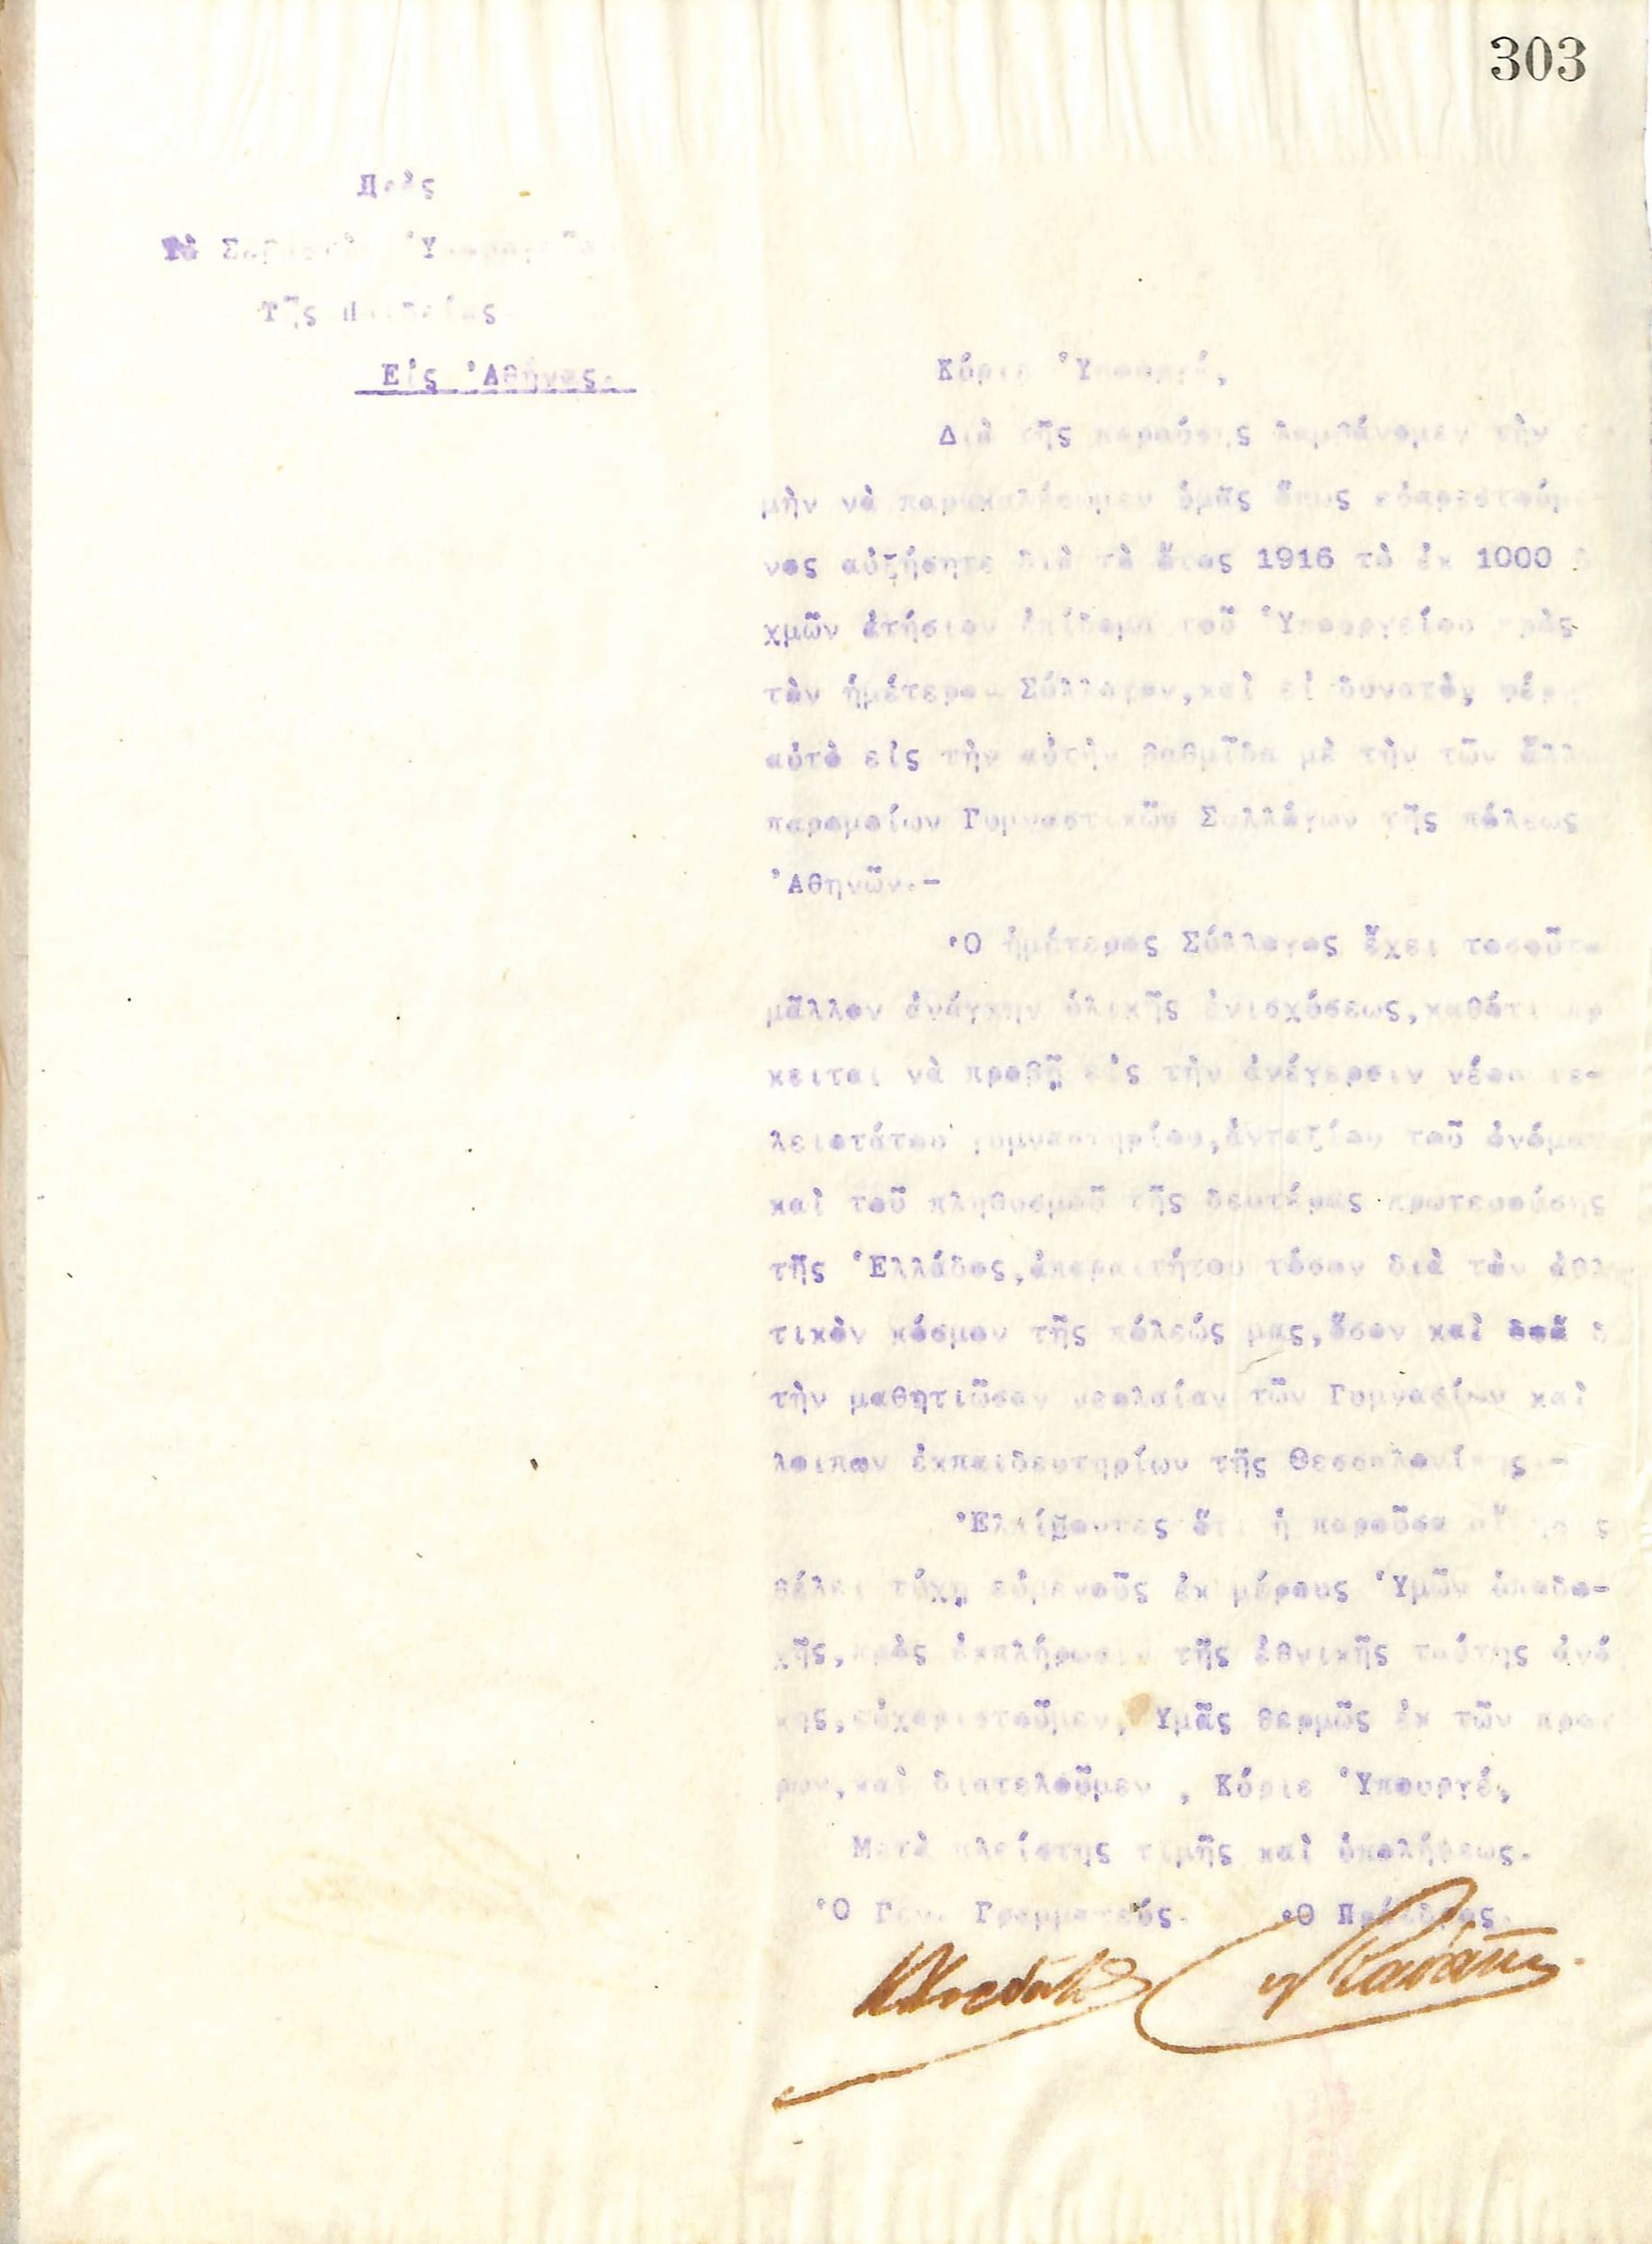 303
Πρὸς
Τὸ Σεβαστὸν Ὑπουργεῖον
Τῆς Παιδείας
Εἰς Ἀθήνας.
Κύριε Ὑπουργέ,
Διὰ τῆς παρούσης λαμβάνομεν τὴν
μὴν νὰ παρακαλέσωμεν ὑμᾶς ὅπως εὐαρεστούμε-
νος αὐξήσητε διὰ τὸ ἔτος 1916 τὸ ἐκ 1000
χμῶν ἐτήσιον ἐπίδομα τοῦ Ὑπουργείου πρὸς
τὸν ἡμέτερον Σύλλογον, καὶ εἰ δυνατὸν, φέρ
αὐτὸ εἰς τὴν αὐτὴν βαθμῖδα μὲ τὴν τῶν ἄλλω
παρομοίων Γυμναστικῶν Συλλόγων τῆς πόλεως
Ἀθηνῶν.-
Ὁ ἡμέτερος Σύλλογος ἔχει τοσοῦτο
μᾶλλον ἀνάγκην ὑλικῆς ἐνισχύσεως, καθότι πρ
κειται νὰ προβῇ εἰς τὴν ἀνέγερσιν νέου τε-
λειοτάτου γυμναστηρίου, ἀνταξίου τοῦ ὀνόμα
καὶ τοῦ πληθυσμοῦ τῆς δευτέρας πρωτευούσης
τῆς Ἑλλάδος, ἀπαραιτήτου τόσον διὰ τὸν ἀθλ
τικὸν κόσμον τῆς πόλεώς μας, ὅσον καὶ δ
τὴν μαθητιῶσαν νεολαίαν τῶν Γυμνασίων καὶ
λοιπων ἐκπαιδευτηρίων τῆς Θεσσαλονίκης.-
Ἐλπίζοντες ὅτι ἡ παροῦσα αἴτησις
θέλει τύχῃ εὐμενοῦς ἐκ μέρους Ὑμῶν ὑποδο-
χῆς, πρὸς ἐκπλήρωσιν τῆς ἐθνικῆς ταύτης ἀνά
κης, εὐχαριστοῦμεν, Ὑμᾶς θερμῶς ἐκ τῶν προτ
ρων, καὶ διατελοῦμεν , Κύριε Ὑπουργέ,
Μετὰ πλείστης τιμῆς καὶ ὑπολήψεως.
Ὁ Γεν. Γραμματεύς. Ὁ Πρόεδρος.